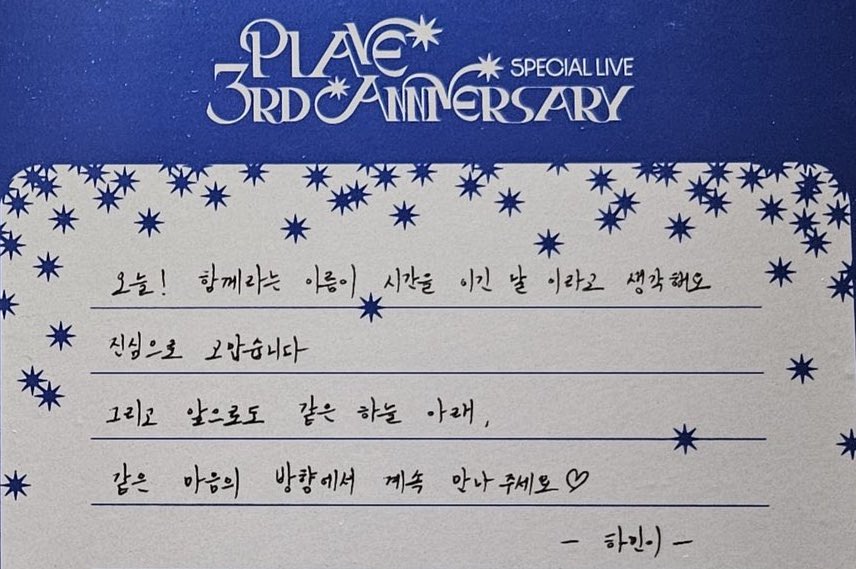 PLAVE
SPECIAL LIVE
3RD ANNIVERSARY
오늘! 함께라는 이름이 시간을 이긴 날 이라고 생각해요
진심으로 고맙습니다
그리고 앞으로도 같은 하늘 아래,
같은 마음의 방향에서 계속 만나 주세요♡
- 하민이 -